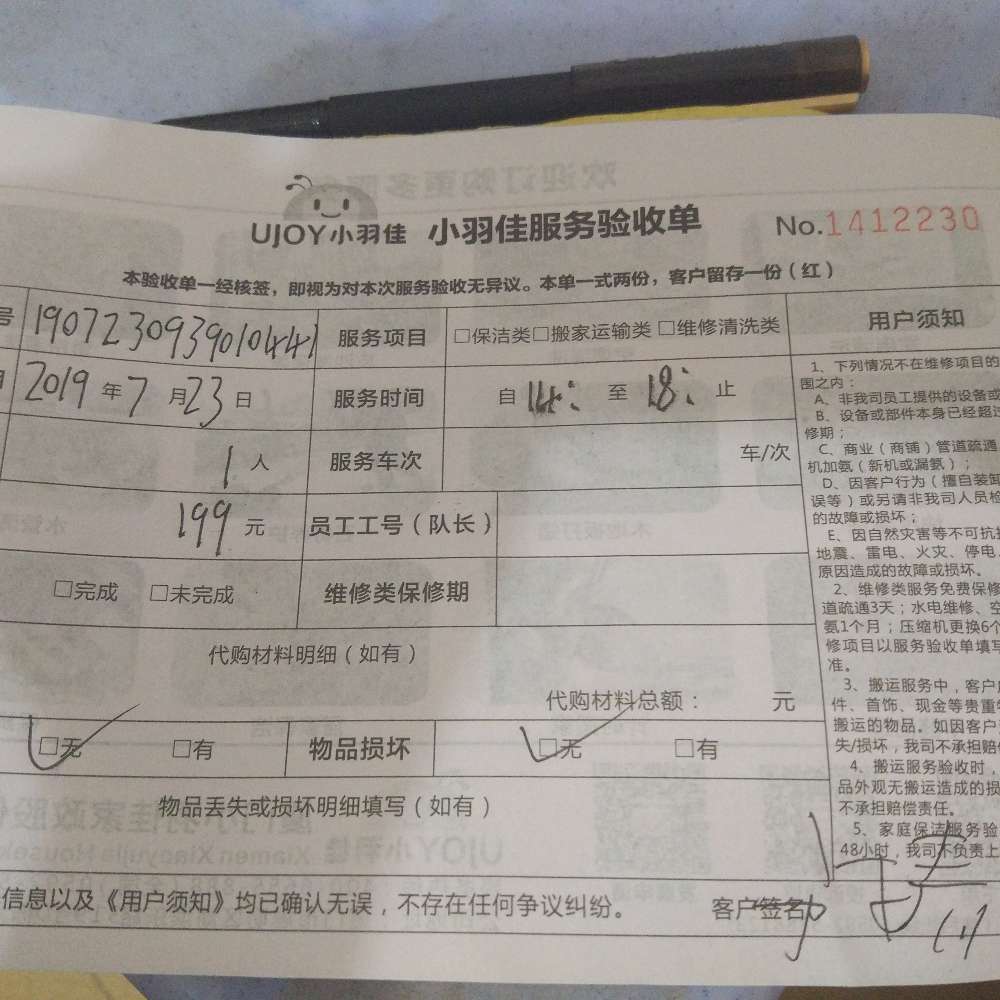 UJOY小羽佳 小羽佳服务验收单 No.1412230
本验收单一经核签，即视为对本次服务验收无异议。本单一式两份，客户留存一份（红）
号 190723093901044 服务项目 □保洁类□搬家运输类 □维修清洗类
2019 年 7 月 23 日 服务时间 自 14: 至 18: 止
1 人 服务车次 车/次
199 元 员工工号（队长）
□完成 □未完成 维修类保修期
代购材料明细（如有）
代购材料总额： 元
□无 □有 物品损坏 □无 □有
物品丢失或损坏明细填写（如有）
信息以及《用户须知》均已确认无误，不存在任何争议纠纷。 客户签名
用户须知
1、下列情况不在维修项目的
围之内：
A、非我司员工提供的设备或
B、设备或部件本身已经超过
修期；
C、商业（商铺）管道疏通
机加氨（新机或漏氨）；
D、因客户行为（擅自装卸
误等）或另请非我司人员检
的故障或损坏；
E、因自然灾害等不可抗拒
地震、雷电、火灾、停电、
原因造成的故障或损坏。
2、维修类服务免费保修
道疏通3天；水电维修、空
氨1个月；压缩机更换6个
修项目以服务验收单填写
准。
3、搬运服务中，客户
件、首饰、现金等贵重
搬运的物品。如因客户
失/损坏，我司不承担赔
4、搬运服务验收时，
品外观无搬运造成的损
不承担赔偿责任。
5、家庭保洁服务验
48小时，我司不负责上